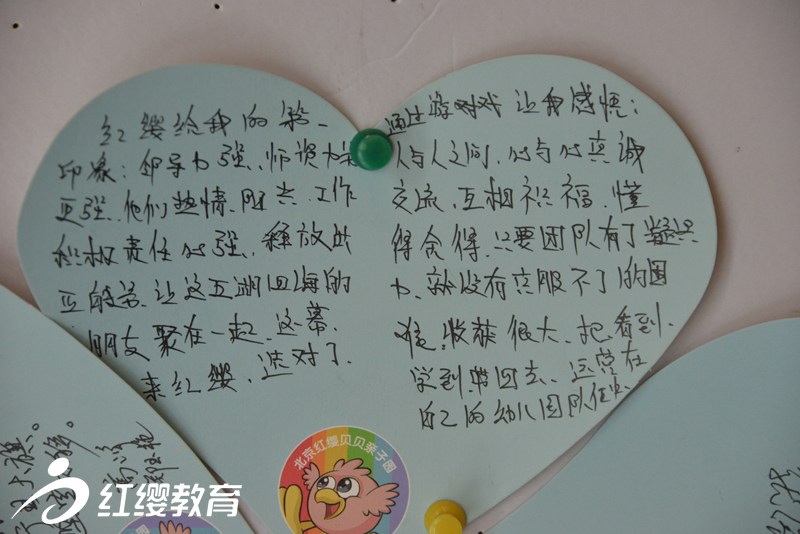 红缨给我的第一
印象：领导力强、师资力
更强、他们热情、阳光、工作
积极责任心强、释放出
正能量、让这五湖四海的
朋友聚在一起、这幕、
来红缨、选对了.
通过游戏 让我感悟：
人与人之间，心与心真诚
交流、互相祝福、懂
得舍得、只要团队有了凝聚
力、就没有克服不了的困
难、收获很大、把看到、
学到带回去、运营在
自己的幼儿园团队
北京红缨贝贝亲子园
红缨教育